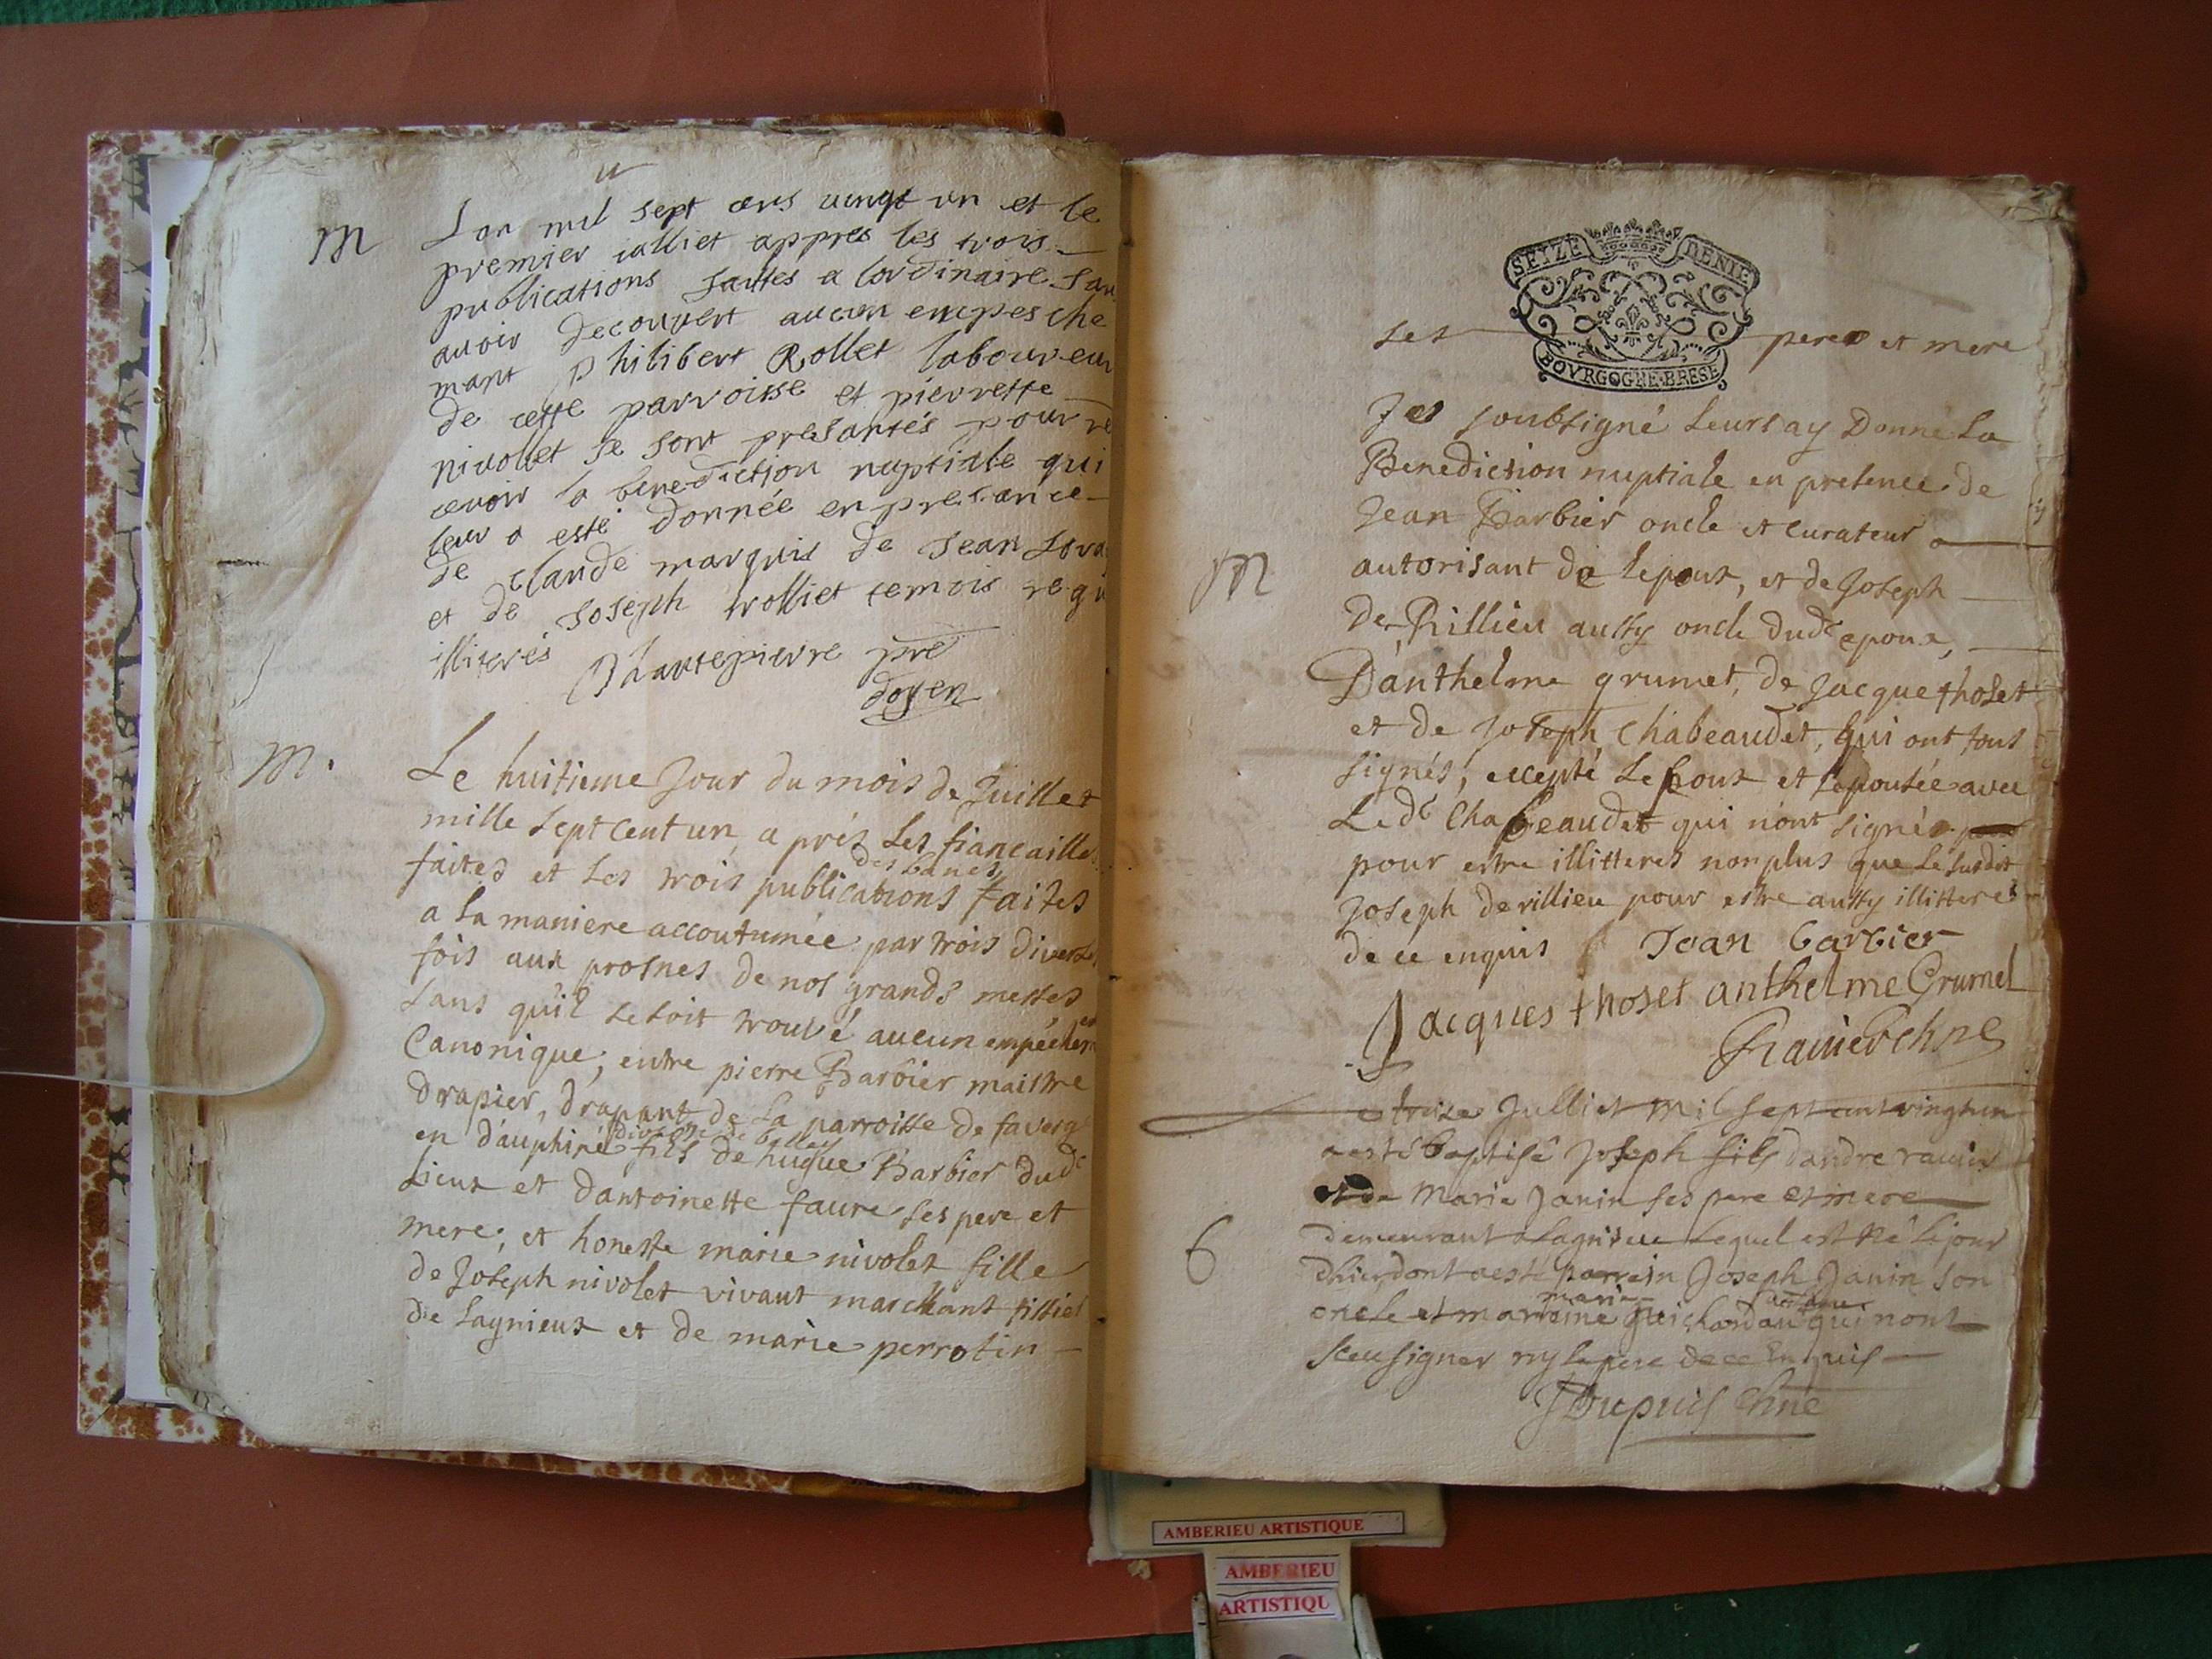 M
Lan mil sept cens vingt un et le
premier iulliet appres les trois
publications faittes a lordinaire san
avoir decouvert aucun empesche
mant philibert Rollet laboureur
de cette parroisse et pierrette
nivollet se sont presantés pour re
cevoir la benediction nuptialle qui
leur a esté donnée en presance
de claude marquis de Jean
et de Joseph trolliet temois
illiterés
Dhautepierre pre
doyen
M.
Le huitieme Jour du mois de Juillet
mille sept cent un, aprés les fiancailles
faites et les trois publications des bancs faites
a la maniere accoutumée par trois diverses
fois aux prosnes de nos grands messes
sans qu'il se soit trouvé aucun empéchem
Canonique; entre pierre Barbier maistre
drapier, drapant de la parroisse de faverg
en dauphiné diocese de belley fils de hugue Barbier dud
Lieux et dantoinette faure ses pere et
mere; et honeste marie nivolet fille
de Joseph nivolet vivant marchant
de Lagnieux et de marie perrotin
SEIZE DENIE
BOVRGOGNE·BRESE
ses pere et mere
Je soubsigné leurs ay Donné La
Benediction nuptiale en presence de
Jean Barbier oncle et curateur
M
autorisant de lepoux, et de Joseph
De Rillieu aussy oncle dud epoux,
D'anthelme grumet, de Jacque thoset
et de Joseph Chabeaudet, qui ont tous
signés, excepté Lepoux et l'epousée avec
Led Chabeaudet qui n'ont signés
pour estre illitteres non plus que le susdit
Joseph de rillieu pour estre aussy illitteres
de ce enquis Jean barbier
Jacques thoset anthelme Grumel
Ravier Chne
treise Julliet mil sept cent vingt un
a esté baptisé Joseph fils dandre ravier
et de Marie Janin ses pere et mere
demeurant a Lagnieu Lequel est né le jour
6
dhier dont a esté parrein Joseph Janin son
oncle et marreine marie guichardan qui nont
sceu signer ny le pere de ce Enquis
JDupuis Chne
AMBERIEU ARTISTIQUE
AMBERIEU
ARTISTIQU